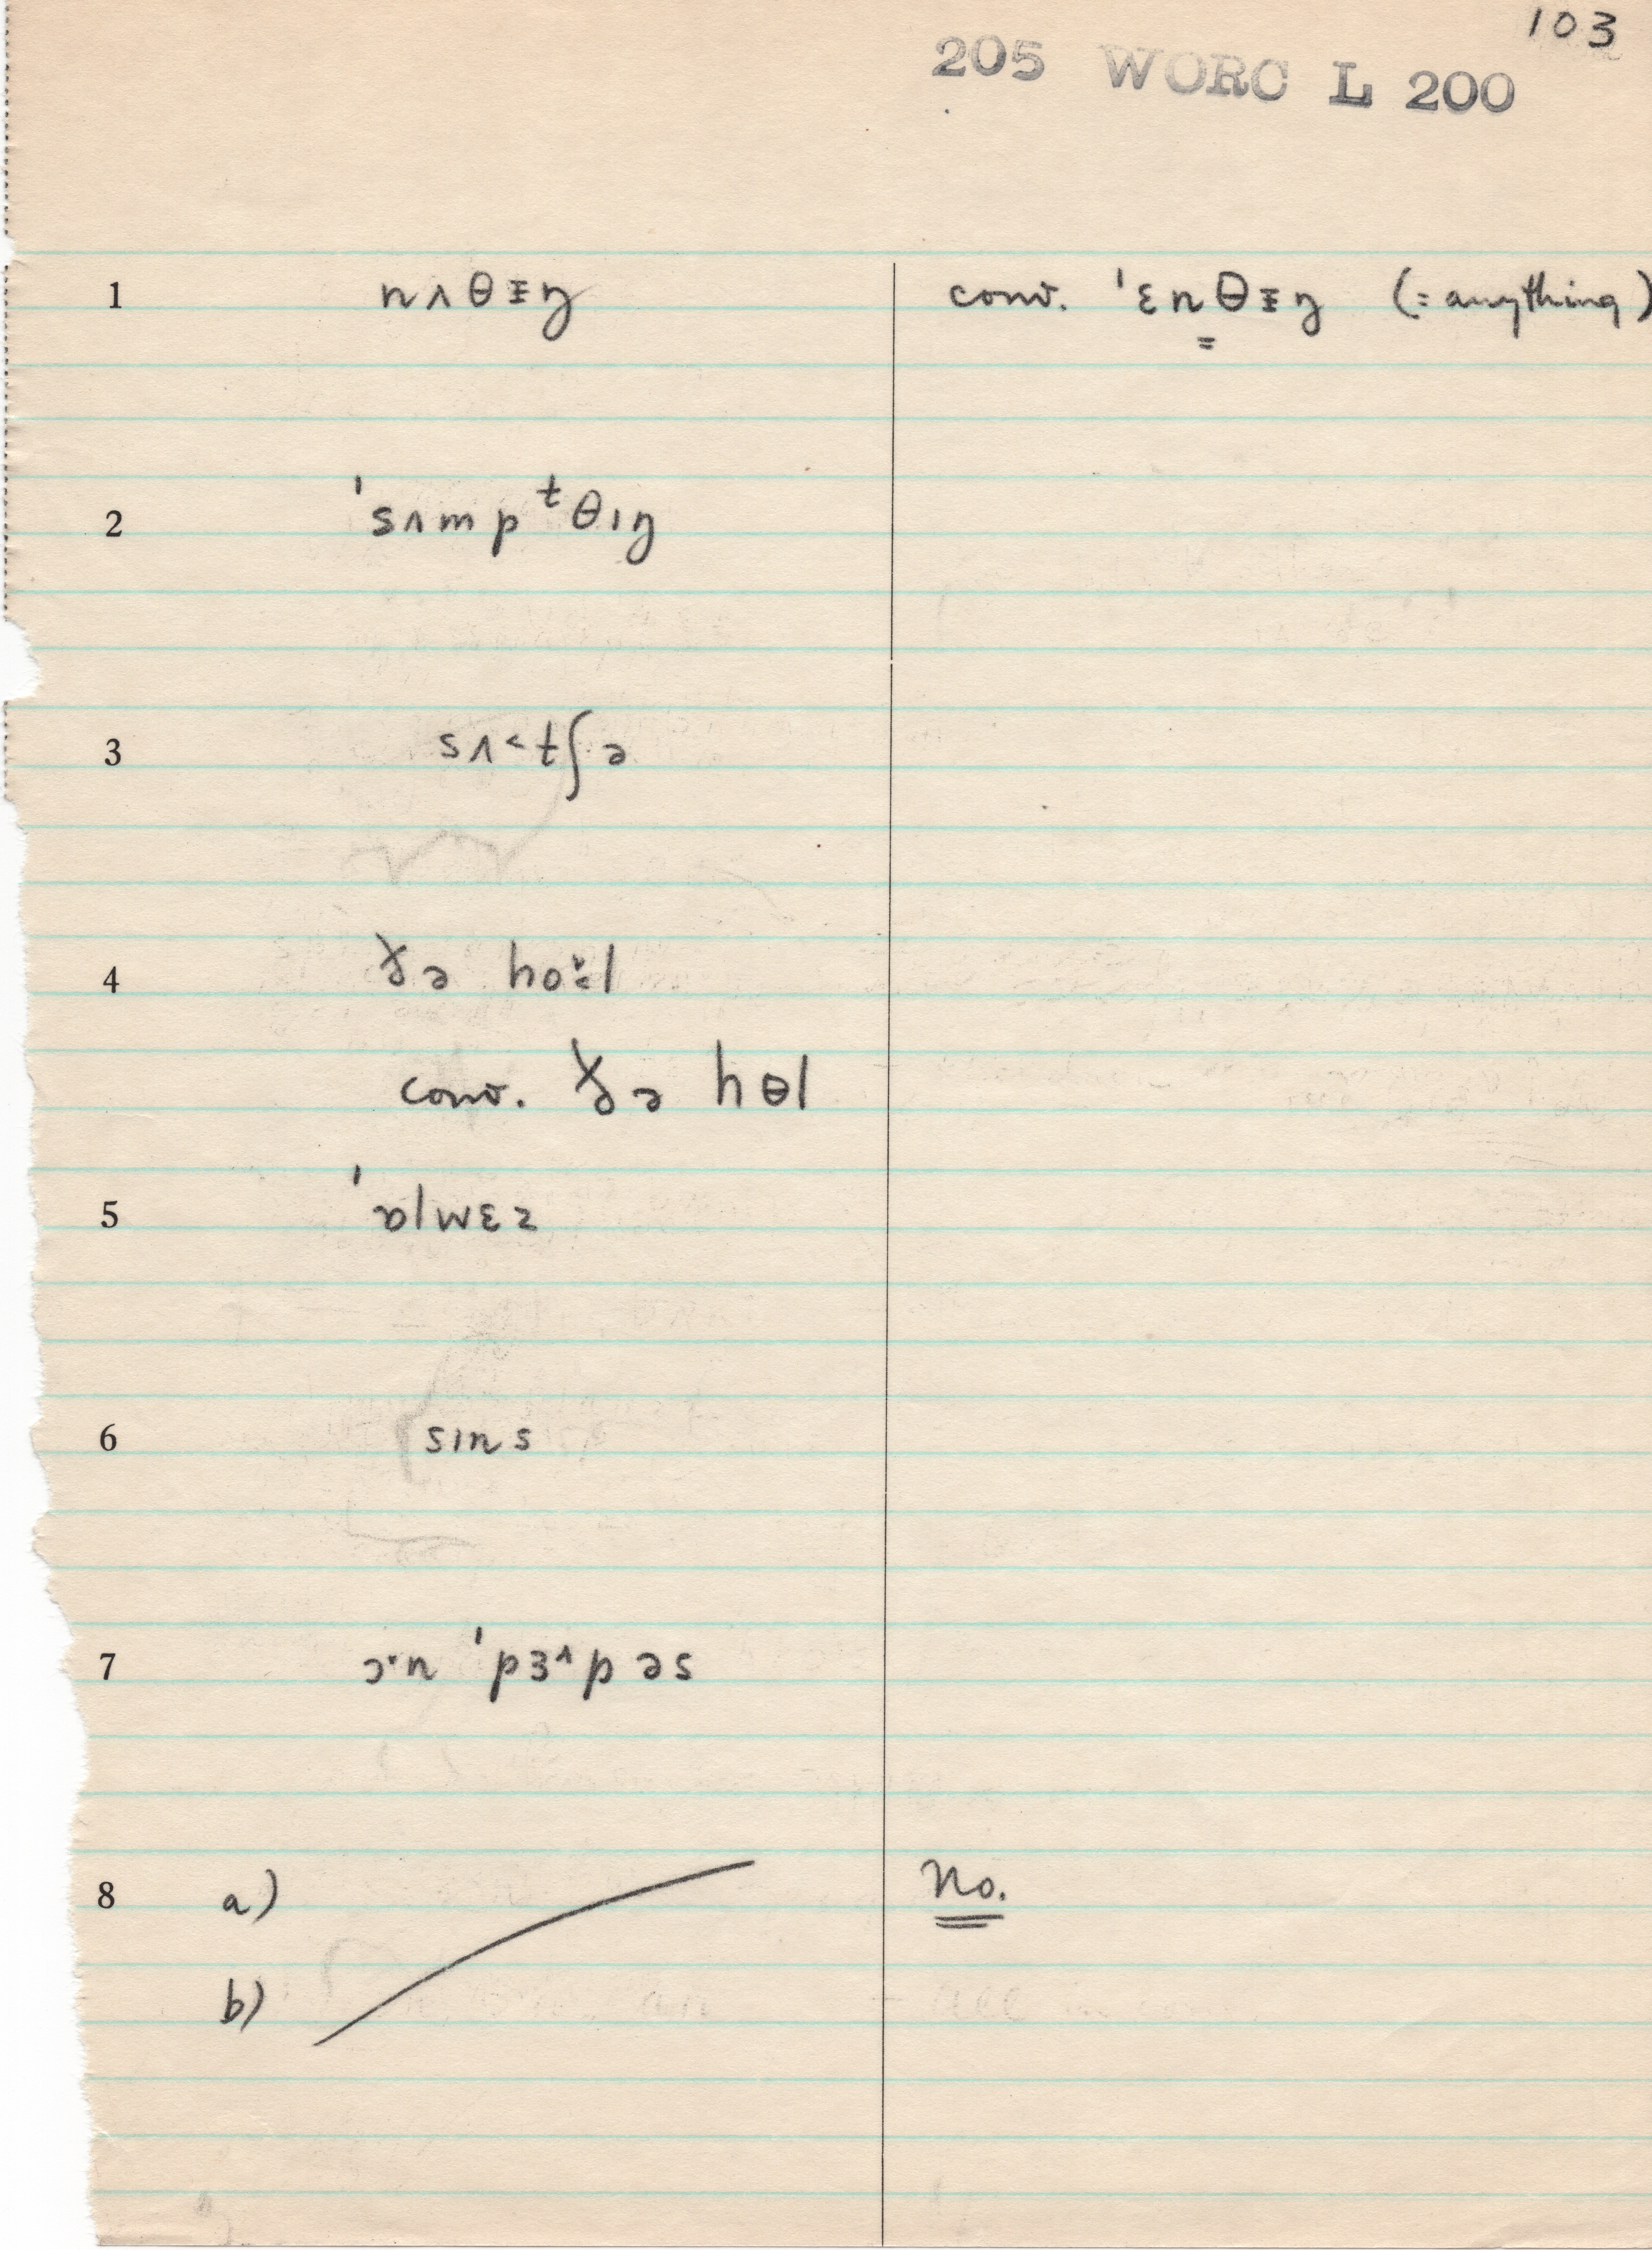 103
205 WORC L 200
1 nʌθɪ̵ŋ conv. ˈɛn̳θɪ̵ŋ (= anything)
2 ˈsʌmpᵗθɪŋ
3 sʌ˂tʃə
4 ɣə ho˞l
conv. ɣə hɵl
5 ˈɒlwɛz
6 sɪns
7 ɔˑn ˈpɜ˄pəs
8 a) No.
b)